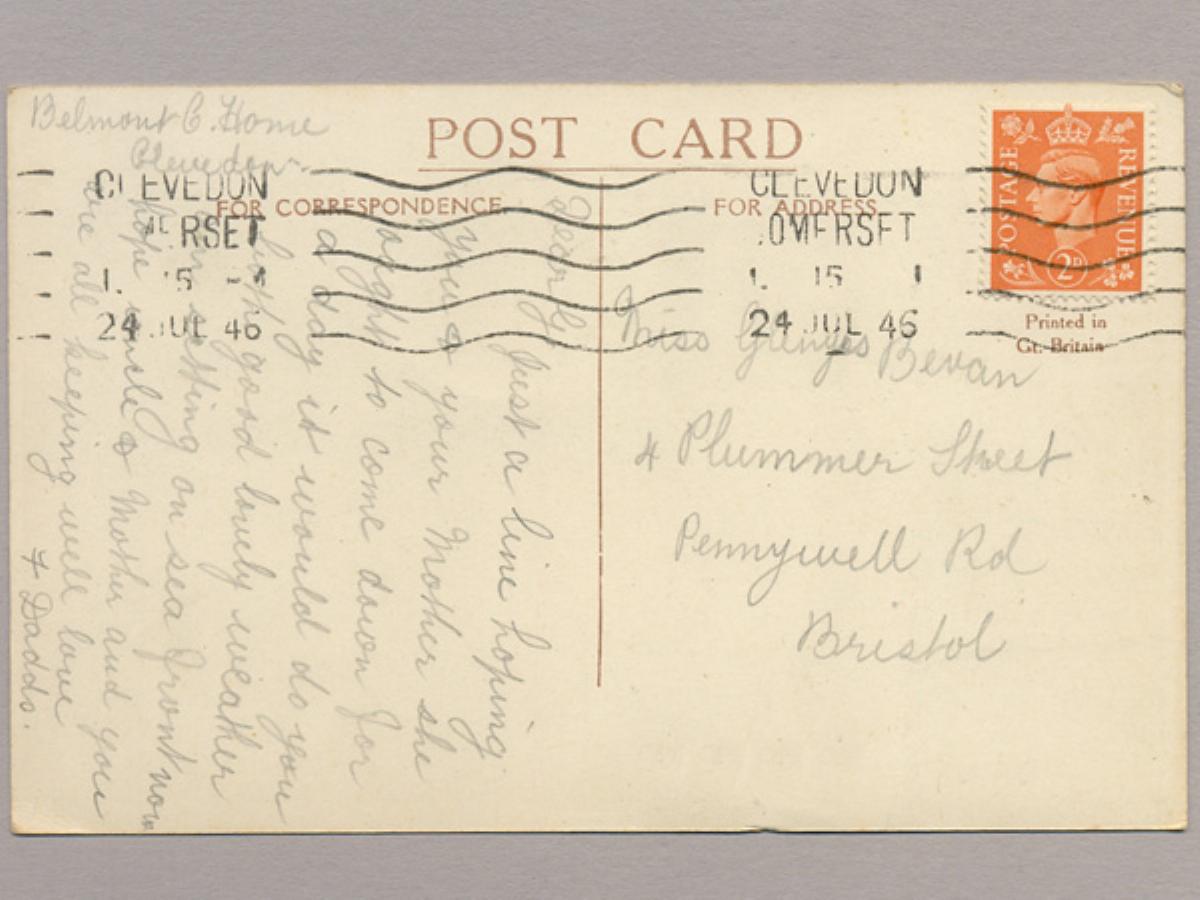 Belmont C. Home
Clevedon
POST CARD
FOR CORRESPONDENCE
FOR ADDRESS
CLEVEDON
RSET
24 JUL 46
CLEVEDON
OMERSET
24 JUL 46
POSTAGE
REVENUE
2D
Printed in
Gt. Britain
Just a line hoping
you & your Mother she
ought to come down for
a day it would do you
both good lovely weather
sitting on sea front now
hope uncle & Mother and you
are all keeping well love
+ Dadds.
Miss Bevan
4 Plummer Street
Pennywell Rd
Bristol